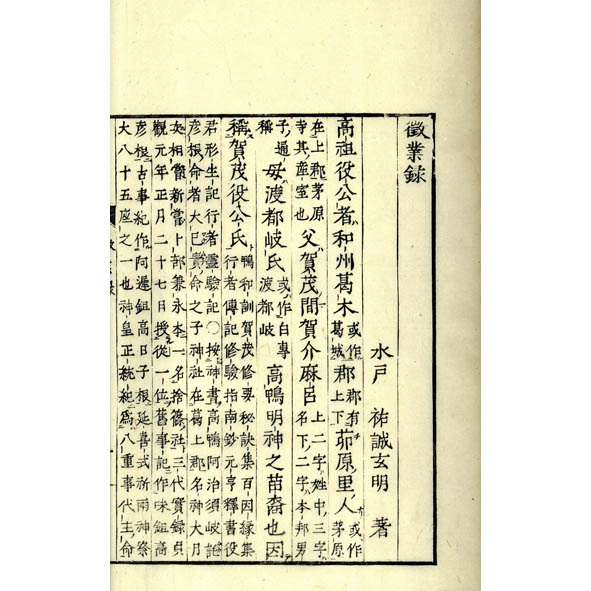 徵業錄
水戶 祐誠玄明 著
高祖役公者和州葛木或作葛城郡郡有上下茆原里人或作茅原
在上郡茅原寺其産室也父賀茂間賀介麻呂上二字姓中三字名下二字本邦男
子通稱母渡都岐氏或作白專渡都岐高鴨明神之苗裔也因
稱賀茂役公氏鴨和訓賀茂修要秘訣集百因緣集行者傳記修驗指南鈔元亨釋書役
君形生記行者靈驗記〇按神書高鴨阿治須岐詫
彦根命者大巳貴命之子神社在葛上郡名神大月
次相嘗新嘗卜部兼永本一名捨篠社三代實録貞
觀元年正月二十七日授從一位舊事記作味鉏高
彦根古事紀作阿遲鉏高日子根延喜式祈雨神祭
大八十五座之一也神皇正統紀爲八重事代主命